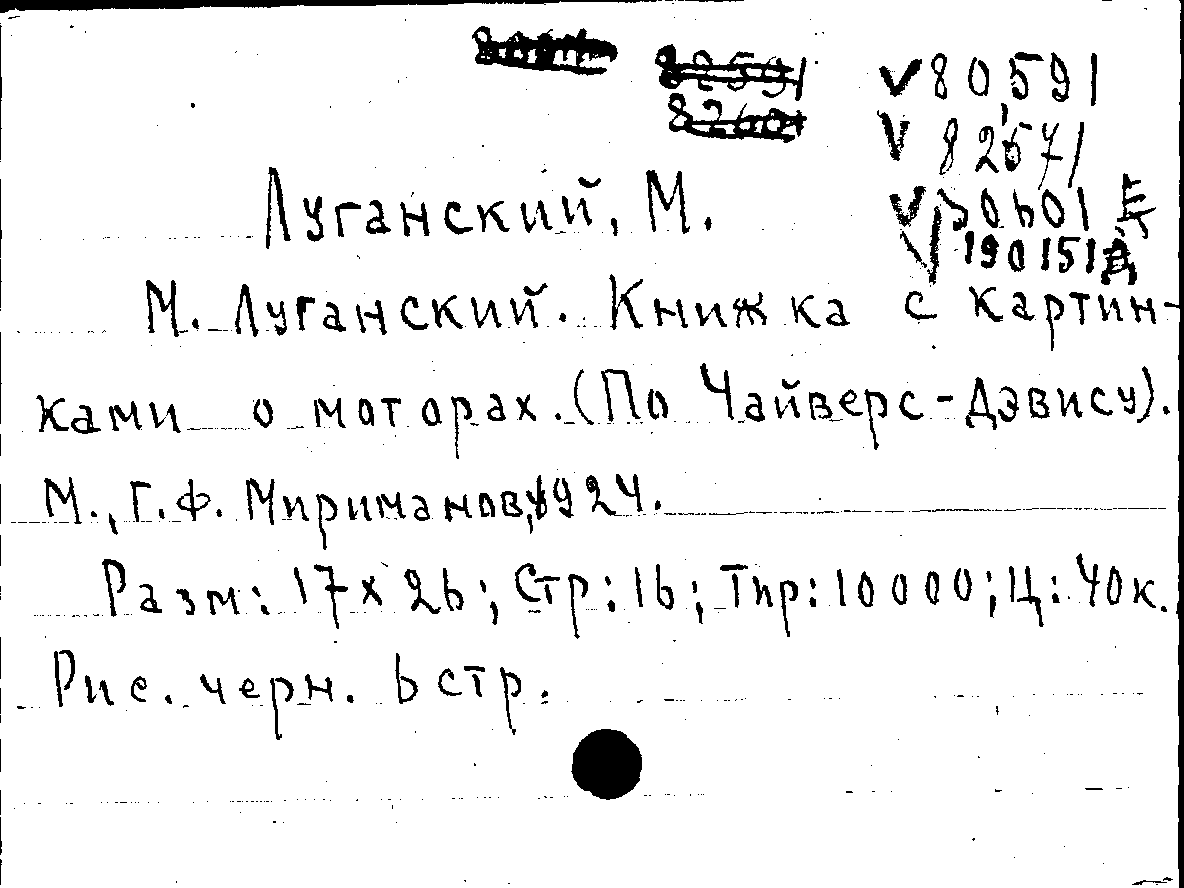 80591
82671
190151
Луганский, М.
М. Луганский. Книжка с картин-
ками о моторах. (По Чайверс-Дэвису).
М., Г.Ф. Мириманов, 1924.
Разм: 17х26; Стр: 16; Тир: 10000; Ц: 40к.
Рис. черн. 6 стр.